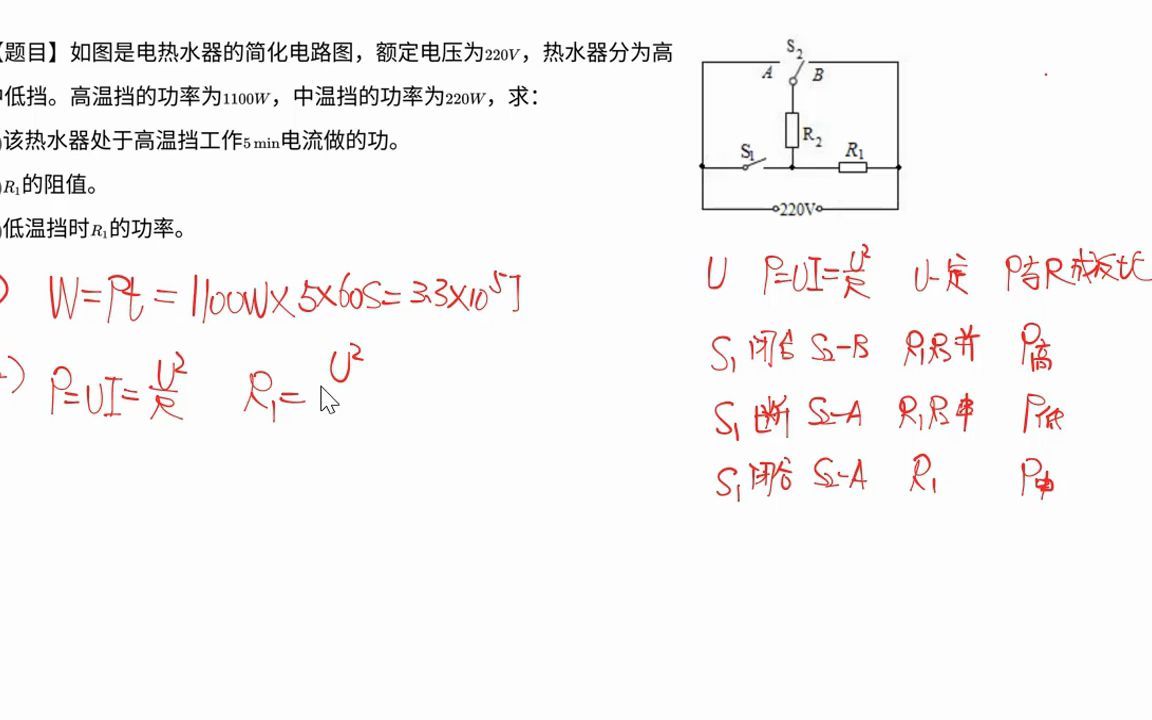 【题目】如图是电热水器的简化电路图，额定电压为220V，热水器分为高
中低挡。高温挡的功率为1100W，中温挡的功率为220W，求：
)该热水器处于高温挡工作5 min电流做的功。
)R₁的阻值。
)低温挡时R₁的功率。
S₂
A B
R₂
S₁ R₁
220V
) W=Pt=1100W×5×60S=3.3×10⁵J
) P=UI=U²/R R₁= U²
U P=UI=U²/R U一定 P与R成反比
S₁闭合 S₂-B R₁R₂并 P高
S₁断 S₂-A R₁R₂串 P低
S₁闭合 S₂-A R₁ P中